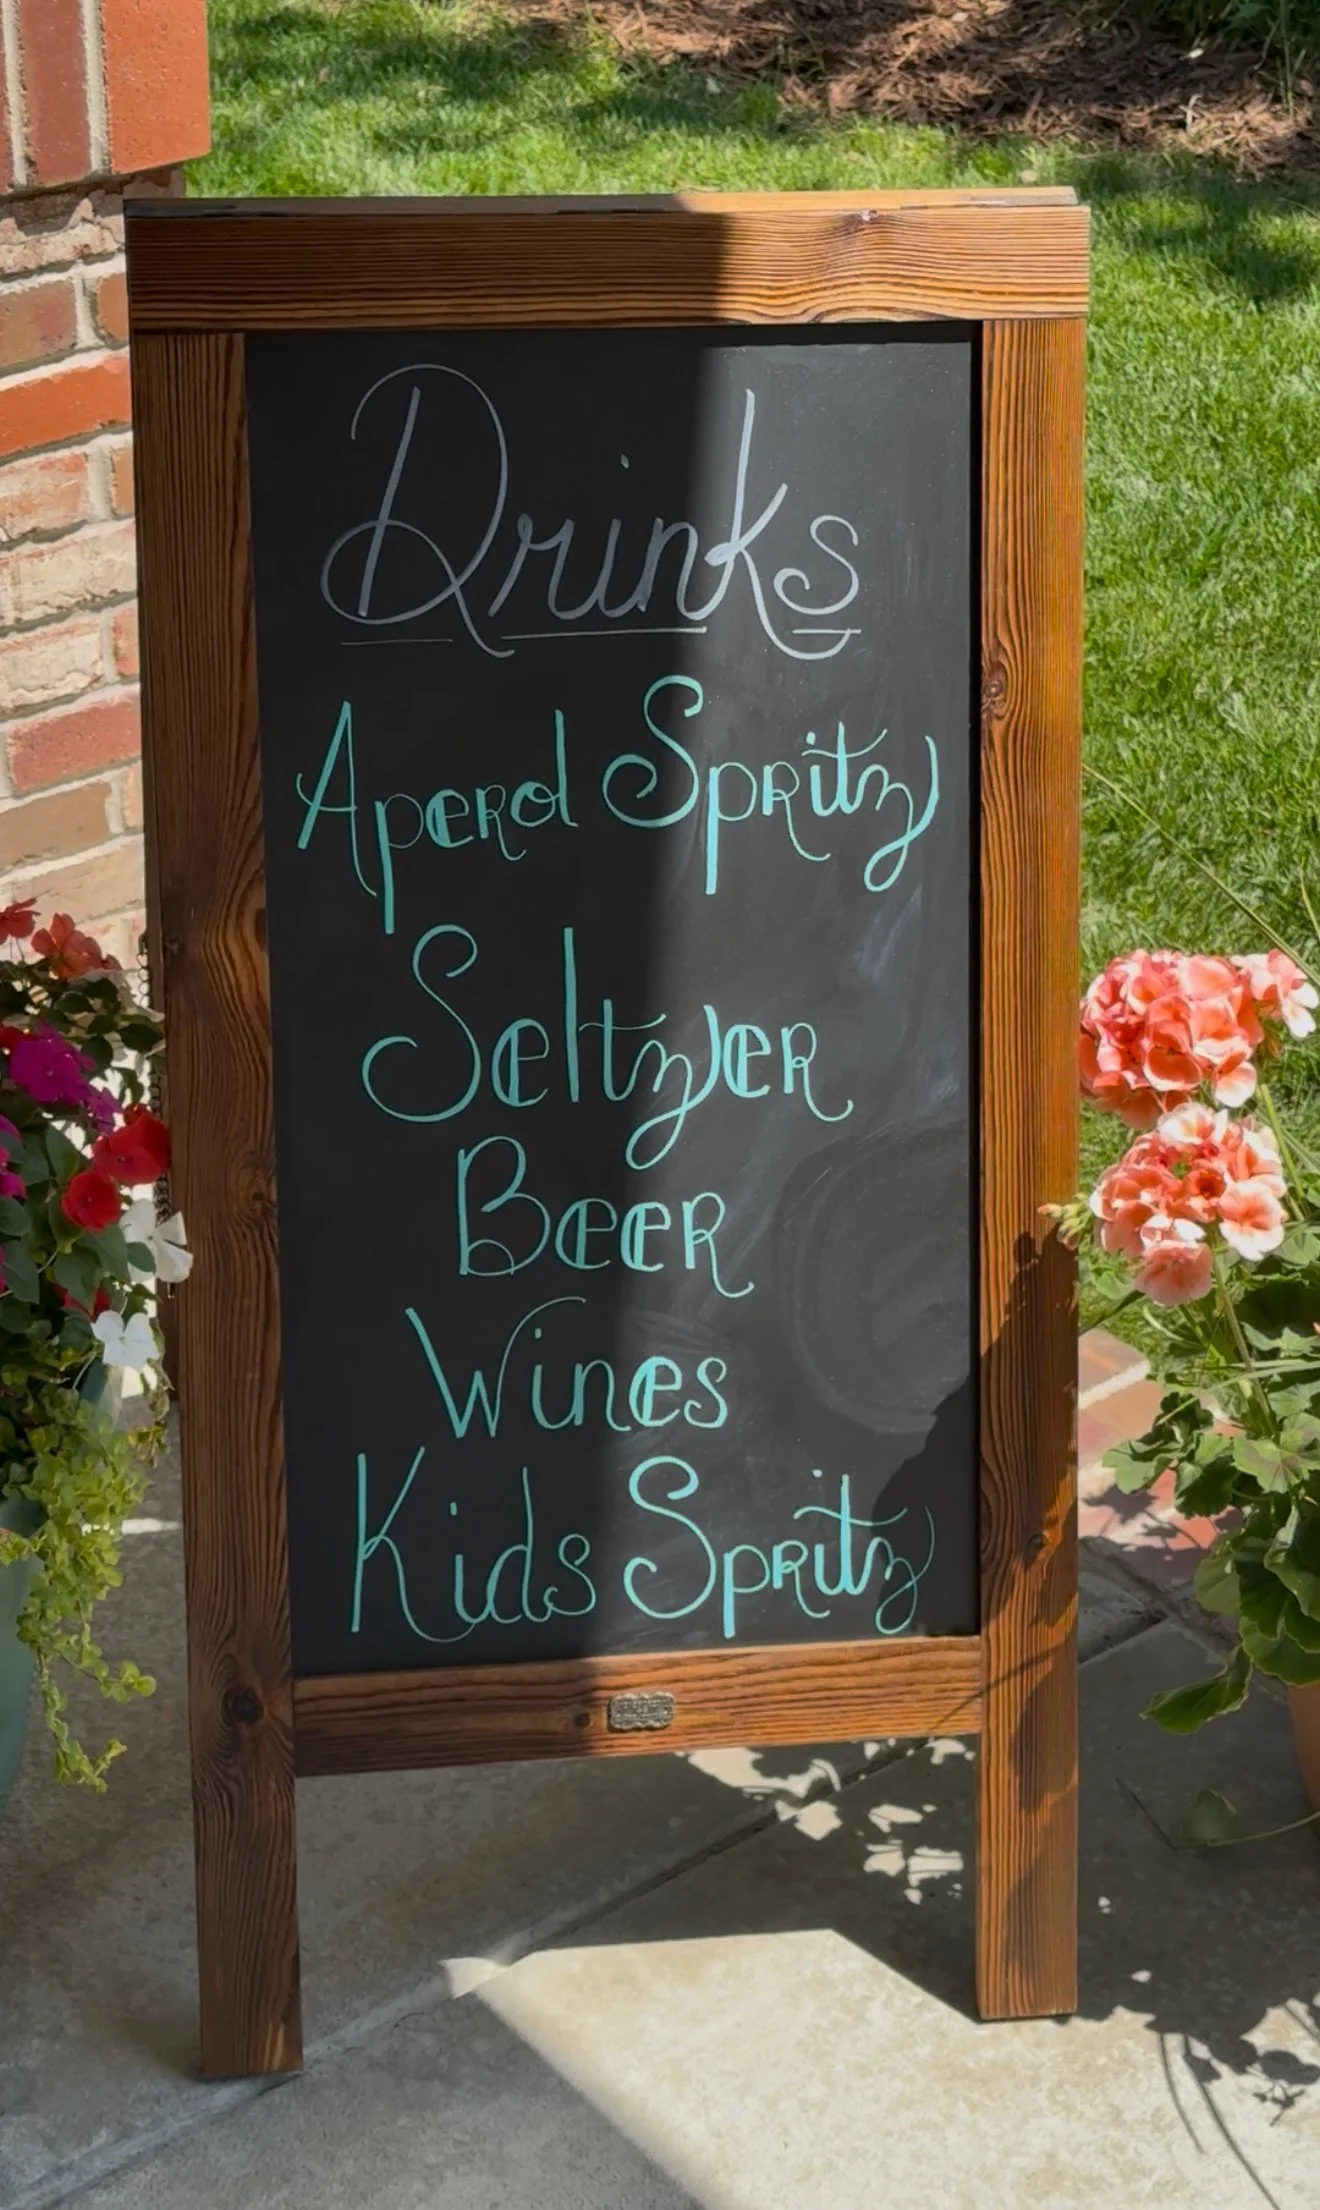 Drinks
Aperol Spritz
Seltzer
Beer
Wines
Kids Spritz